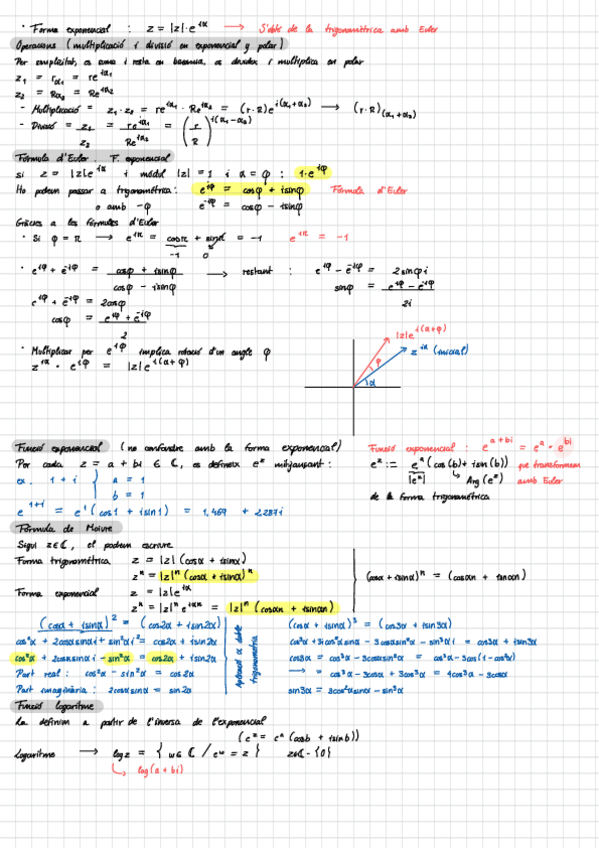 · Forma exponencial : z = |z|·e^iα ⟶ S'obté de la trigonomètrica amb Euler
Operacions (multiplicació i divisió en exponencial y polar)
Per simplicitat, es suma i resta en binomia, es divideix i multiplica en polar
z₁ = r_α₁ = re^iα₁
z₂ = R_α₂ = Re^iα₂
- Multiplicació = z₁·z₂ = re^iα₁ · Re^iα₂ = (r·R)e^i(α₁+α₂) ⟶ (r·R)_(α₁+α₂)
- Divisió = z₁/z₂ = re^iα₁/Re^iα₂ = (r/R)^i(α₁-α₂)
Fórmula d'Euler. F. exponencial
si z = |z|e^iα i mòdul |z| = 1 i α = φ : 1·e^iφ
Ho podem passar a trigonomètrica: e^iφ = cosφ + isinφ Fórmula d'Euler
o amb -φ e^-iφ = cosφ - isinφ
Gràcies a les fórmules d'Euler
· Si φ = π ⟶ e^iπ = cosπ + sinπi = -1 e^iπ = -1
-1 0
· e^iφ + e^-iφ = cosφ + isinφ / cosφ - isinφ ⟶ restant : e^iφ - e^-iφ = 2sinφi
sinφ = e^iφ - e^-iφ / 2i
e^iφ + e^-iφ = 2cosφ
cosφ = e^iφ + e^-iφ / 2
· Multiplicar per e^iφ implica rotació d'un angle φ
z^iα · e^iφ = |z|e^i(α+φ)
|z|e^i(α+φ)
z^iα (inicial)
φ
α
Funció exponencial (no confondre amb la forma exponencial)
Funció exponencial : e^a+bi = e^a · e^bi
Per cada z = a + bi ∈ ℂ, es defineix e^z mitjançant :
e^z := e^a (cos(b) + isin(b)) que transformem amb Euler
|e^z| ↳ Arg(e^z)
de la forma trigonomètrica
ex. 1 + i } a = 1
b = 1
e^1+i = e¹(cos1 + isin1) = 1,469 + 2,287i
Fórmula de Moivre
Sigui z∈ℂ, el podem escriure
Forma trigonomètrica z = |z|(cosα + isinα)
zⁿ = |z|ⁿ(cosα + isinα)ⁿ
(cosα + isinα)ⁿ = (cosαn + isinαn)
Forma exponencial z = |z|e^iα
zⁿ = |z|ⁿe^iαn = |z|ⁿ(cosαn + isinαn)
(cosα + isinα)² = (cos2α + isin2α)
cos²α + 2cosαsinαi + sin²αi² = cos2α + isin2α
cos²α + 2cosαsinαi - sin²α = cos2α + isin2α
Part real : cos²α - sin²α = cos2α
Part imaginària : 2cosαsinα = sin2α
Aplicació α doble trigonometria
(cosα + isinα)³ = (cos3α + isin3α)
cos³α + 3icos²αsinα - 3cosαsin²α - sin³αi = cos3α + isin3α
cos3α = cos³α - 3cosαsin²α = cos³α - 3cosα(1-cos²α)
⟶ = cos³α - 3cosα + 3cos³α = 4cos³α - 3cosα
sin3α = 3cos²αsinα - sin³α
Funció logaritme
La definim a partir de l'inversa de l'exponencial
(e^z = e^a (cosb + isinb))
Logaritme ⟶ logz = { w∈ℂ / e^w = z } z∈ℂ-{0}
↳ log(a + bi)